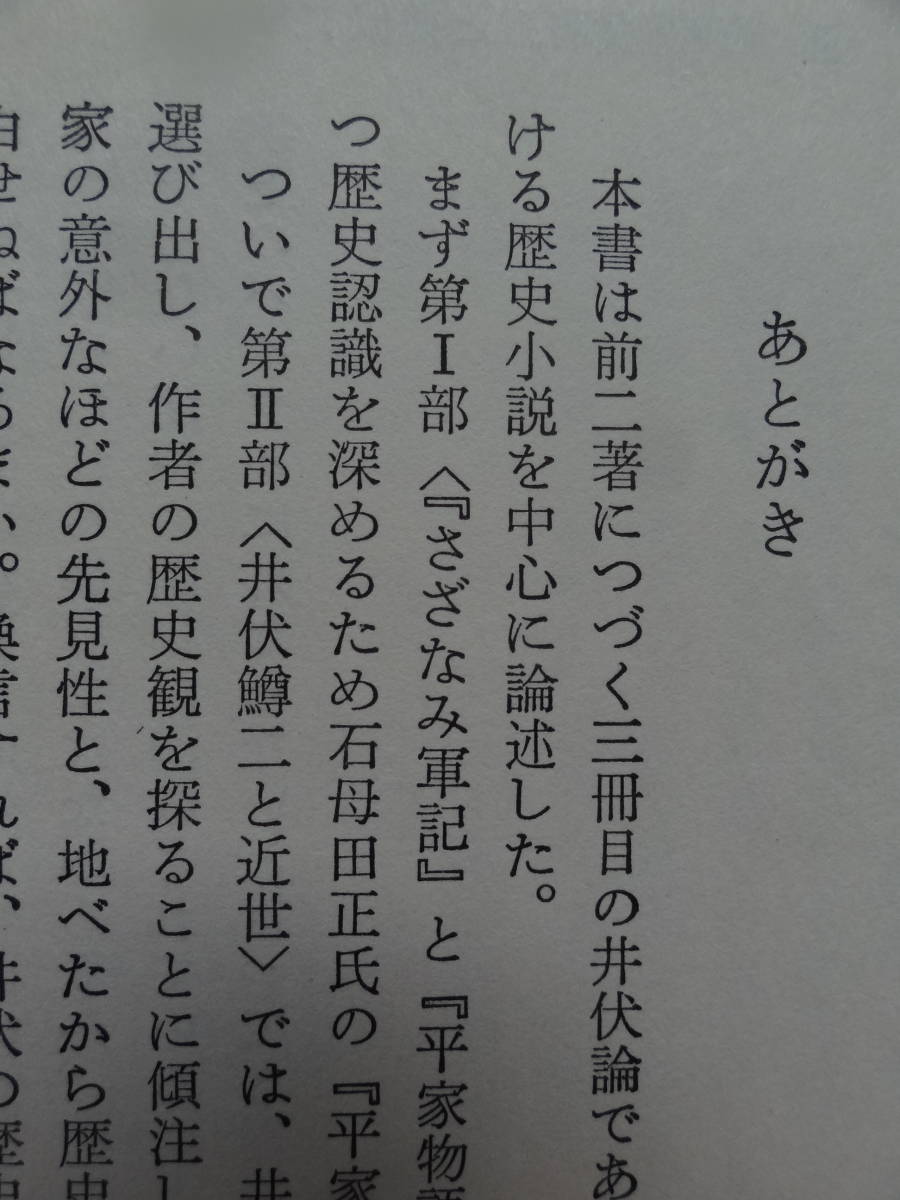 あとがき
本書は前二著につづく三冊目の井伏論であ
ける歴史小説を中心に論述した。
まず第Ⅰ部〈『さざなみ軍記』と『平家物語
つ歴史認識を深めるため石母田正氏の『平家
ついで第Ⅱ部〈井伏鱒二と近世〉では、井
選び出し、作者の歴史観を探ることに傾注し
家の意外なほどの先見性と、地べたから歴史
白せねばなるまい。換言すれば、井伏の歴史